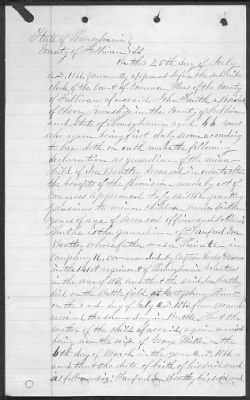 State of Pennsylvania
County of Sullivan SS
On this 25th day of July
A.D. 1866 personally appeared before the
clerk of the Court of Common Pleas of the County
of Sullivan aforesaid John Smith a resident
of township in the County of Sullivan
and State of Pennsylvania aged 66 years
who upon being first duly sworn according
to law doth on oath make the following
declaration as guardian of the minor
child of Bentley deceased in order to obtain
the benefits of the provision made by act of
Congress approved July 14 1862 granting
pensions to minor children under sixteen
years of age of deceased officers and soldiers
That he is the guardian of
Bentley whose father was a Private in
company K, commanded by Captain
in the 141st regiment of Pennsylvania Volunteers
in the war of 1861 and that the said Bentley
died on the Battle field at Gettysburg
on the 2nd day of July A.D. 1863 from wounds
received the same day in Battle. That the
mother of the child aforesaid again married
being now the wife of George Miller on the
6th day of March in the year A.D. 1866
and that the date of birth of his said ward
is as follows Bentley his said ward